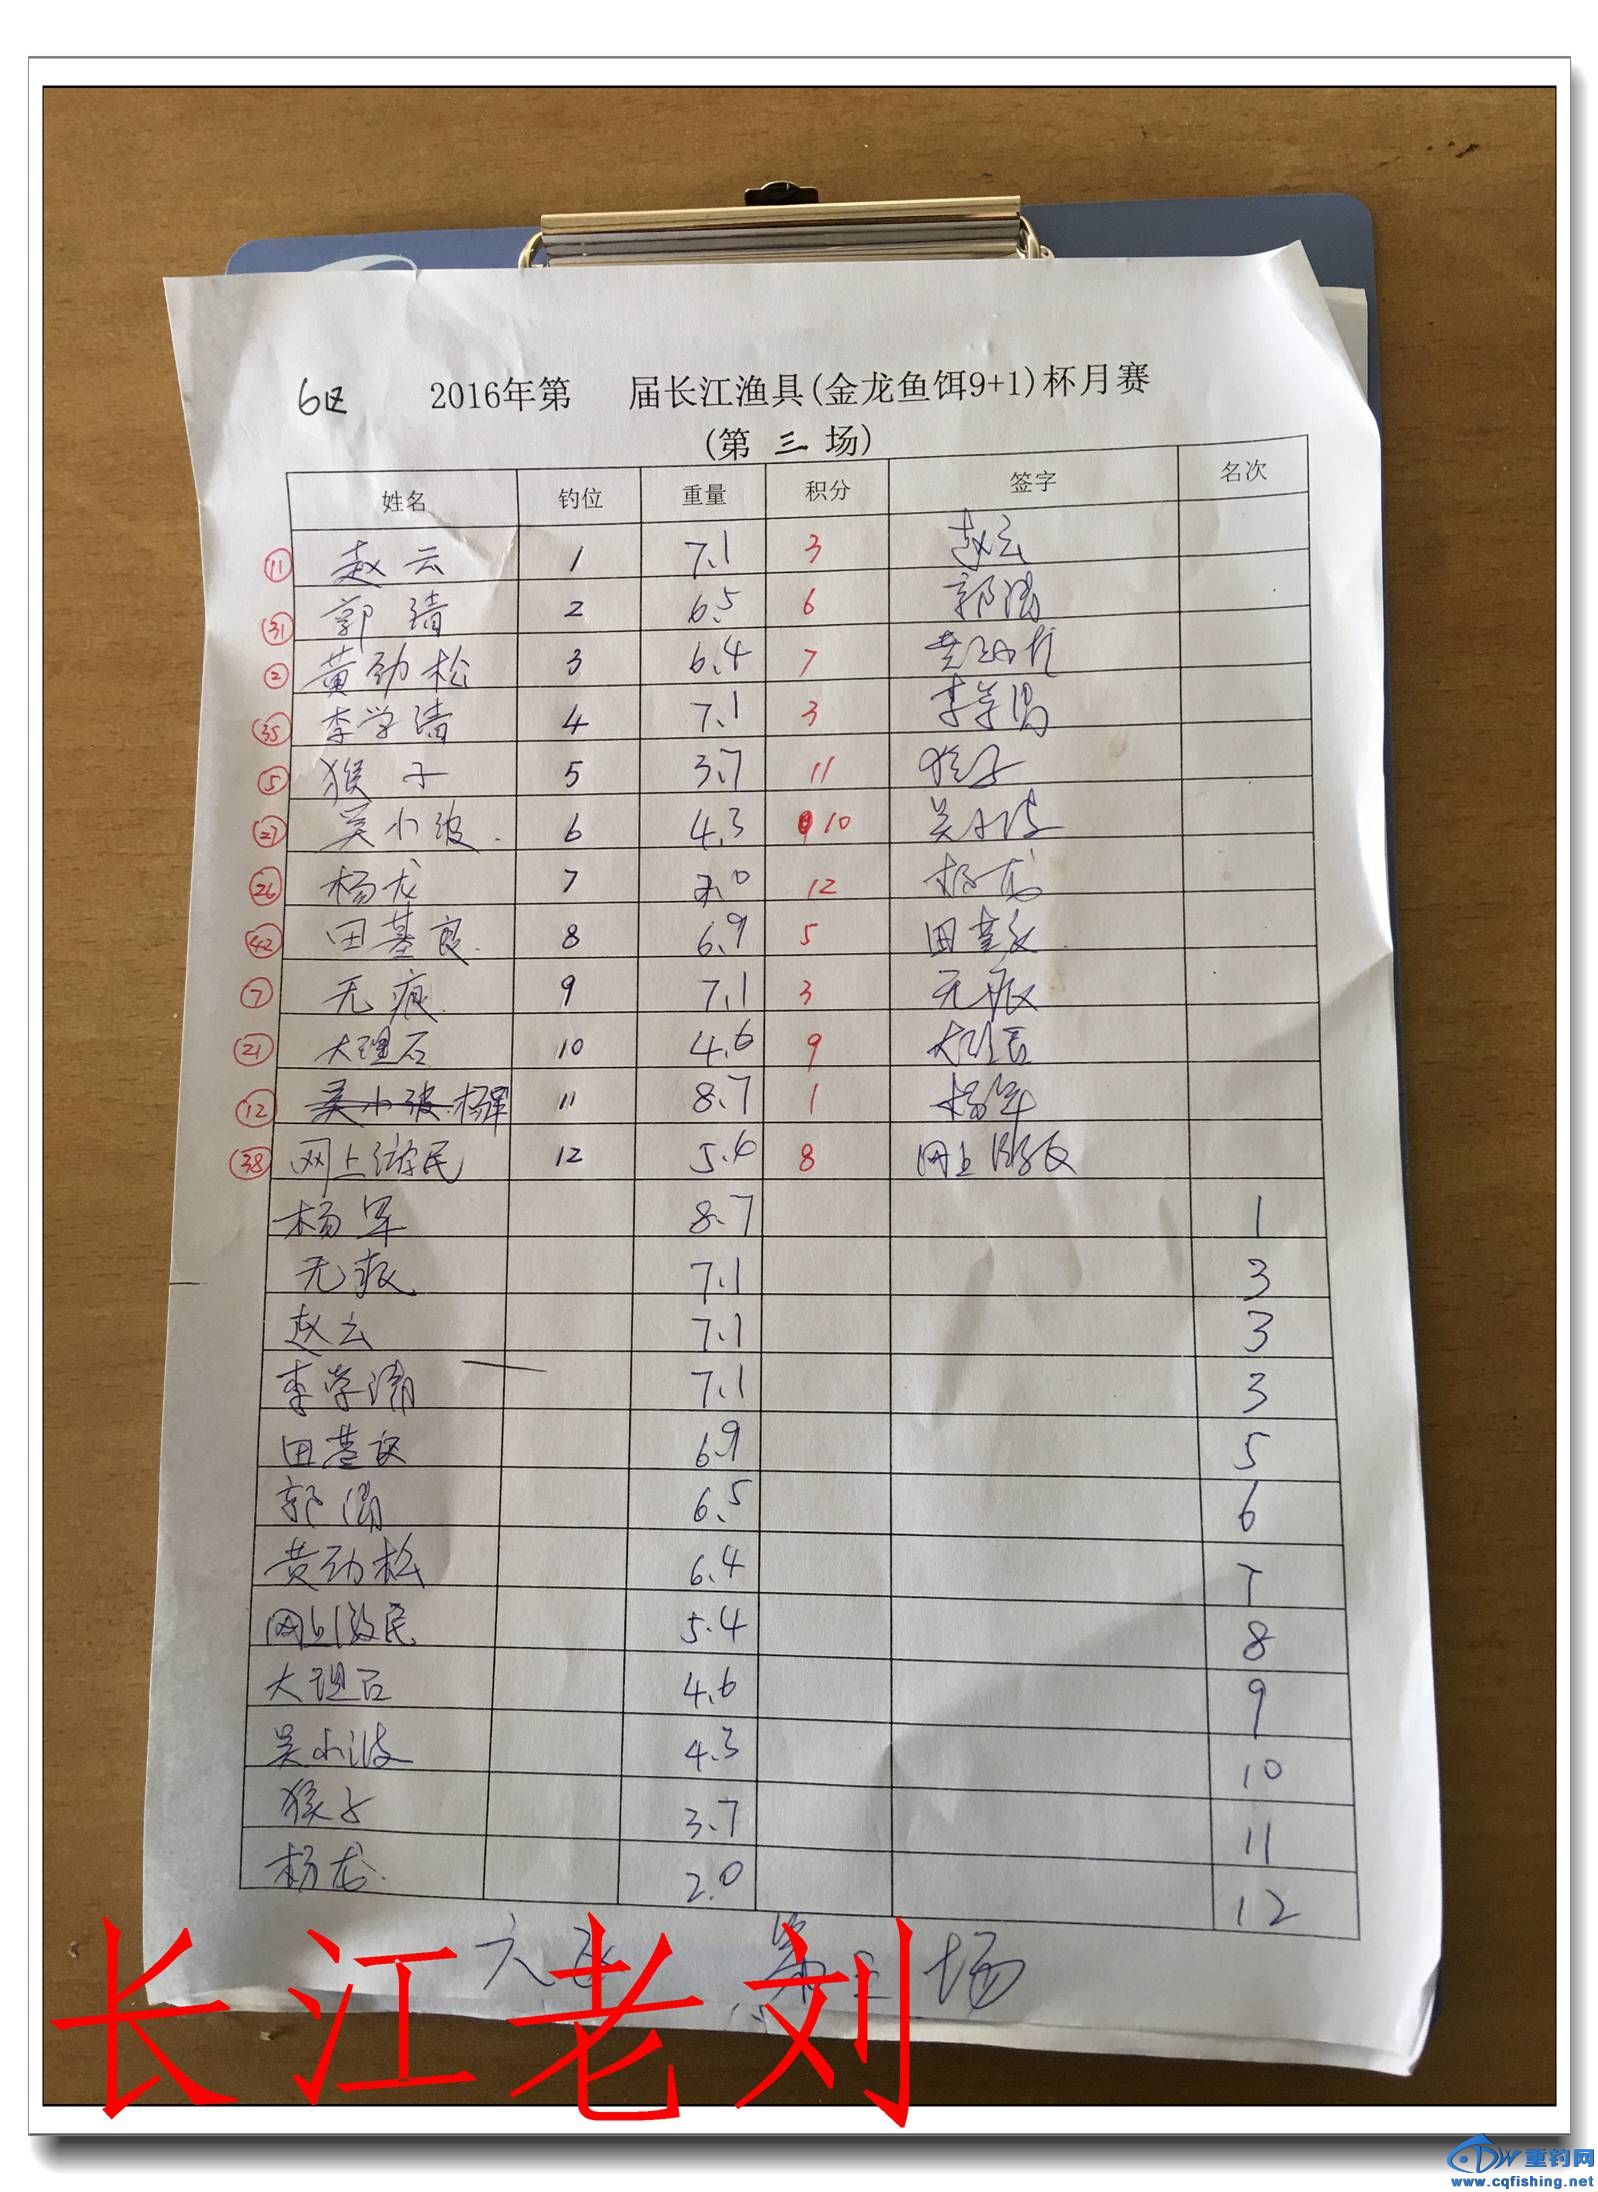 6区 2016年第 届长江渔具(金龙鱼饵9+1)杯月赛
(第 三 场)
姓名 钓位 重量 积分 签字 名次
⑪ 赵云 1 7.1 3 赵云
㉛ 郭清 2 6.5 6 郭清
② 黄劲松 3 6.4 7 黄劲松
㉟ 李学清 4 7.1 3 李学清
⑤ 猴子 5 3.7 11 猴子
㉗ 吴小波. 6 4.3 10 吴小波
㉖ 杨龙 7 2.0 12 杨龙
㊷ 田基良. 8 6.9 5 田基良
⑦ 无痕. 9 7.1 3 无痕
㉑ 大理石 10 4.6 9 大理石
⑫ 吴小波 杨军 11 8.7 1 杨军
㊳ 网上游民 12 5.4 8 网上游民
杨军 8.7 1
无痕 7.1 3
赵云 7.1 3
李学清 7.1 3
田基良 6.9 5
郭清 6.5 6
黄劲松 6.4 7
网上游民 5.4 8
大理石 4.6 9
吴小波 4.3 10
猴子 3.7 11
杨龙. 2.0 12
六区 第三场
长江老刘
重钓网
www.cqfishing.net